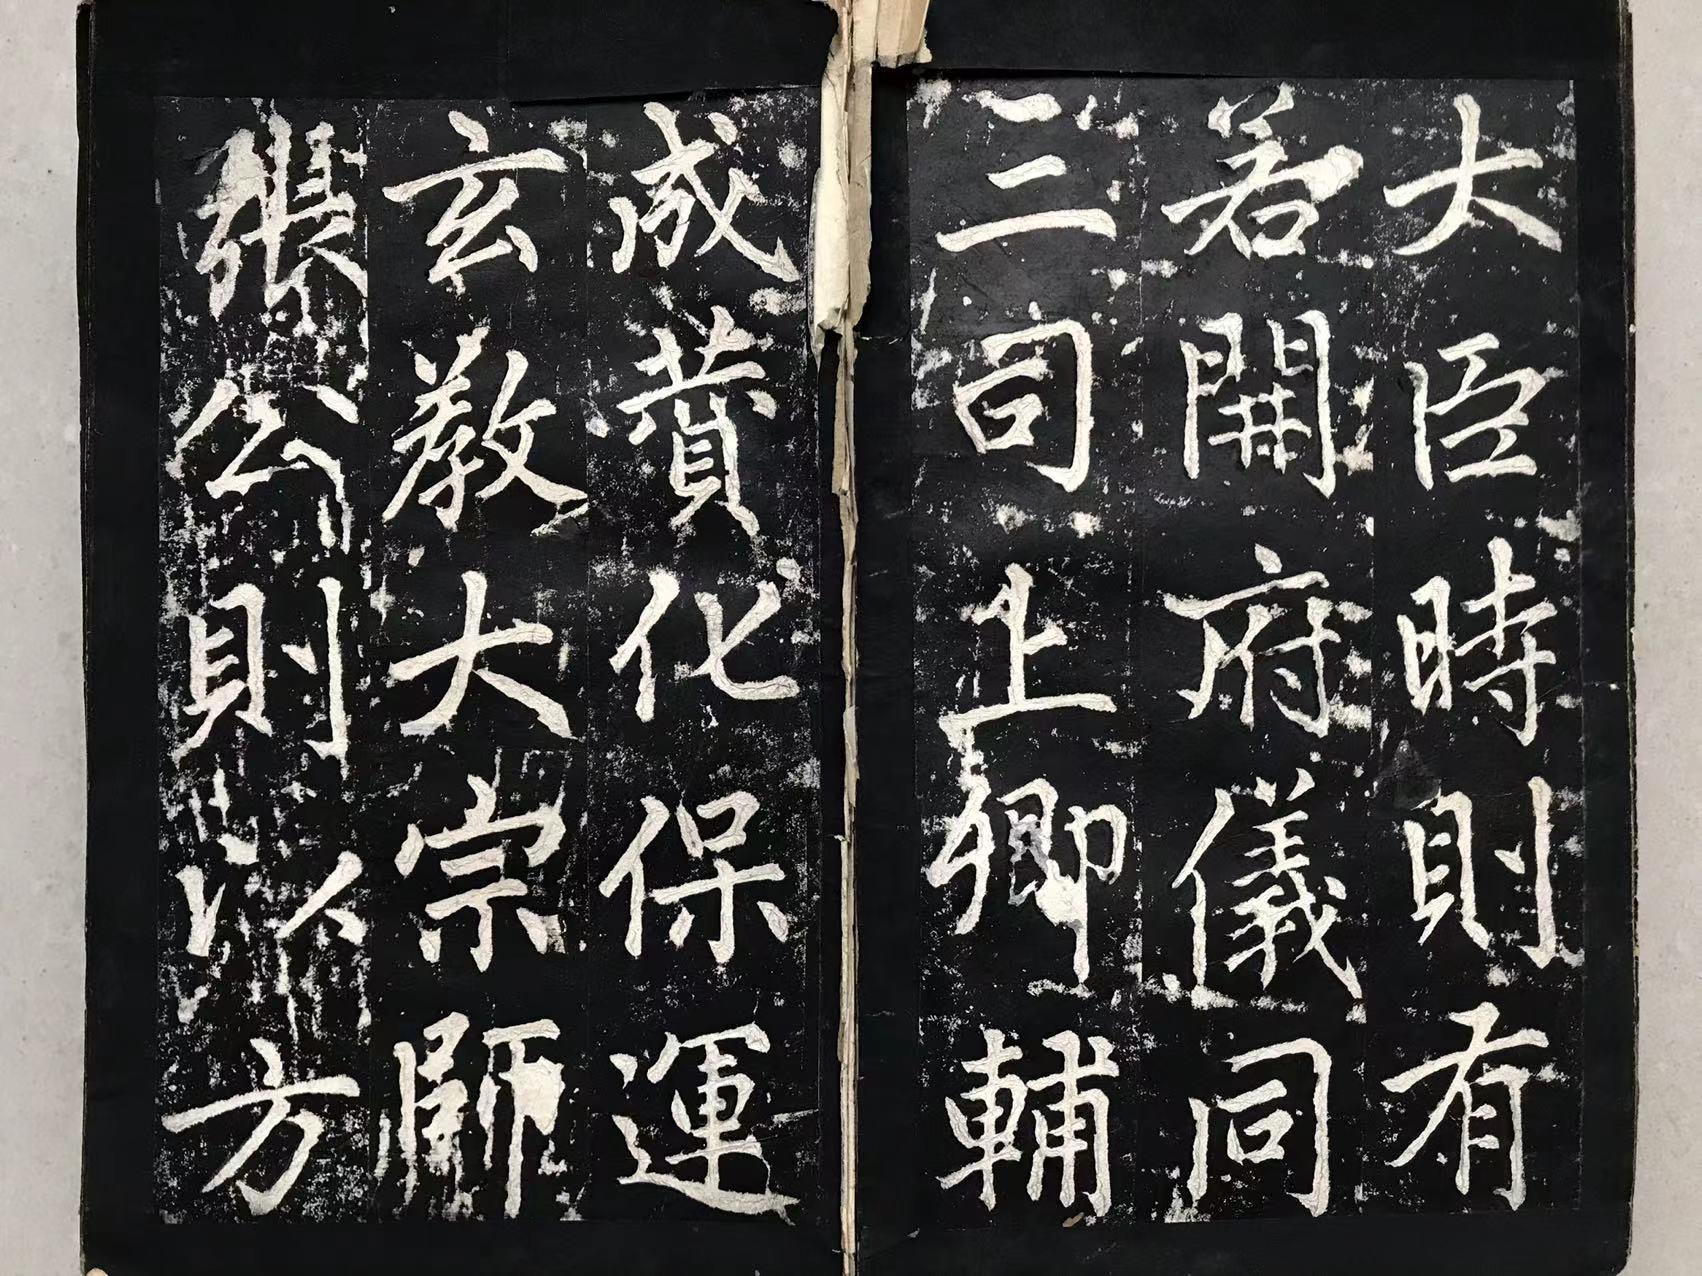 大臣時則有
若開府儀同
三司上卿輔
成賛化保運
玄教大宗師
張公則治方